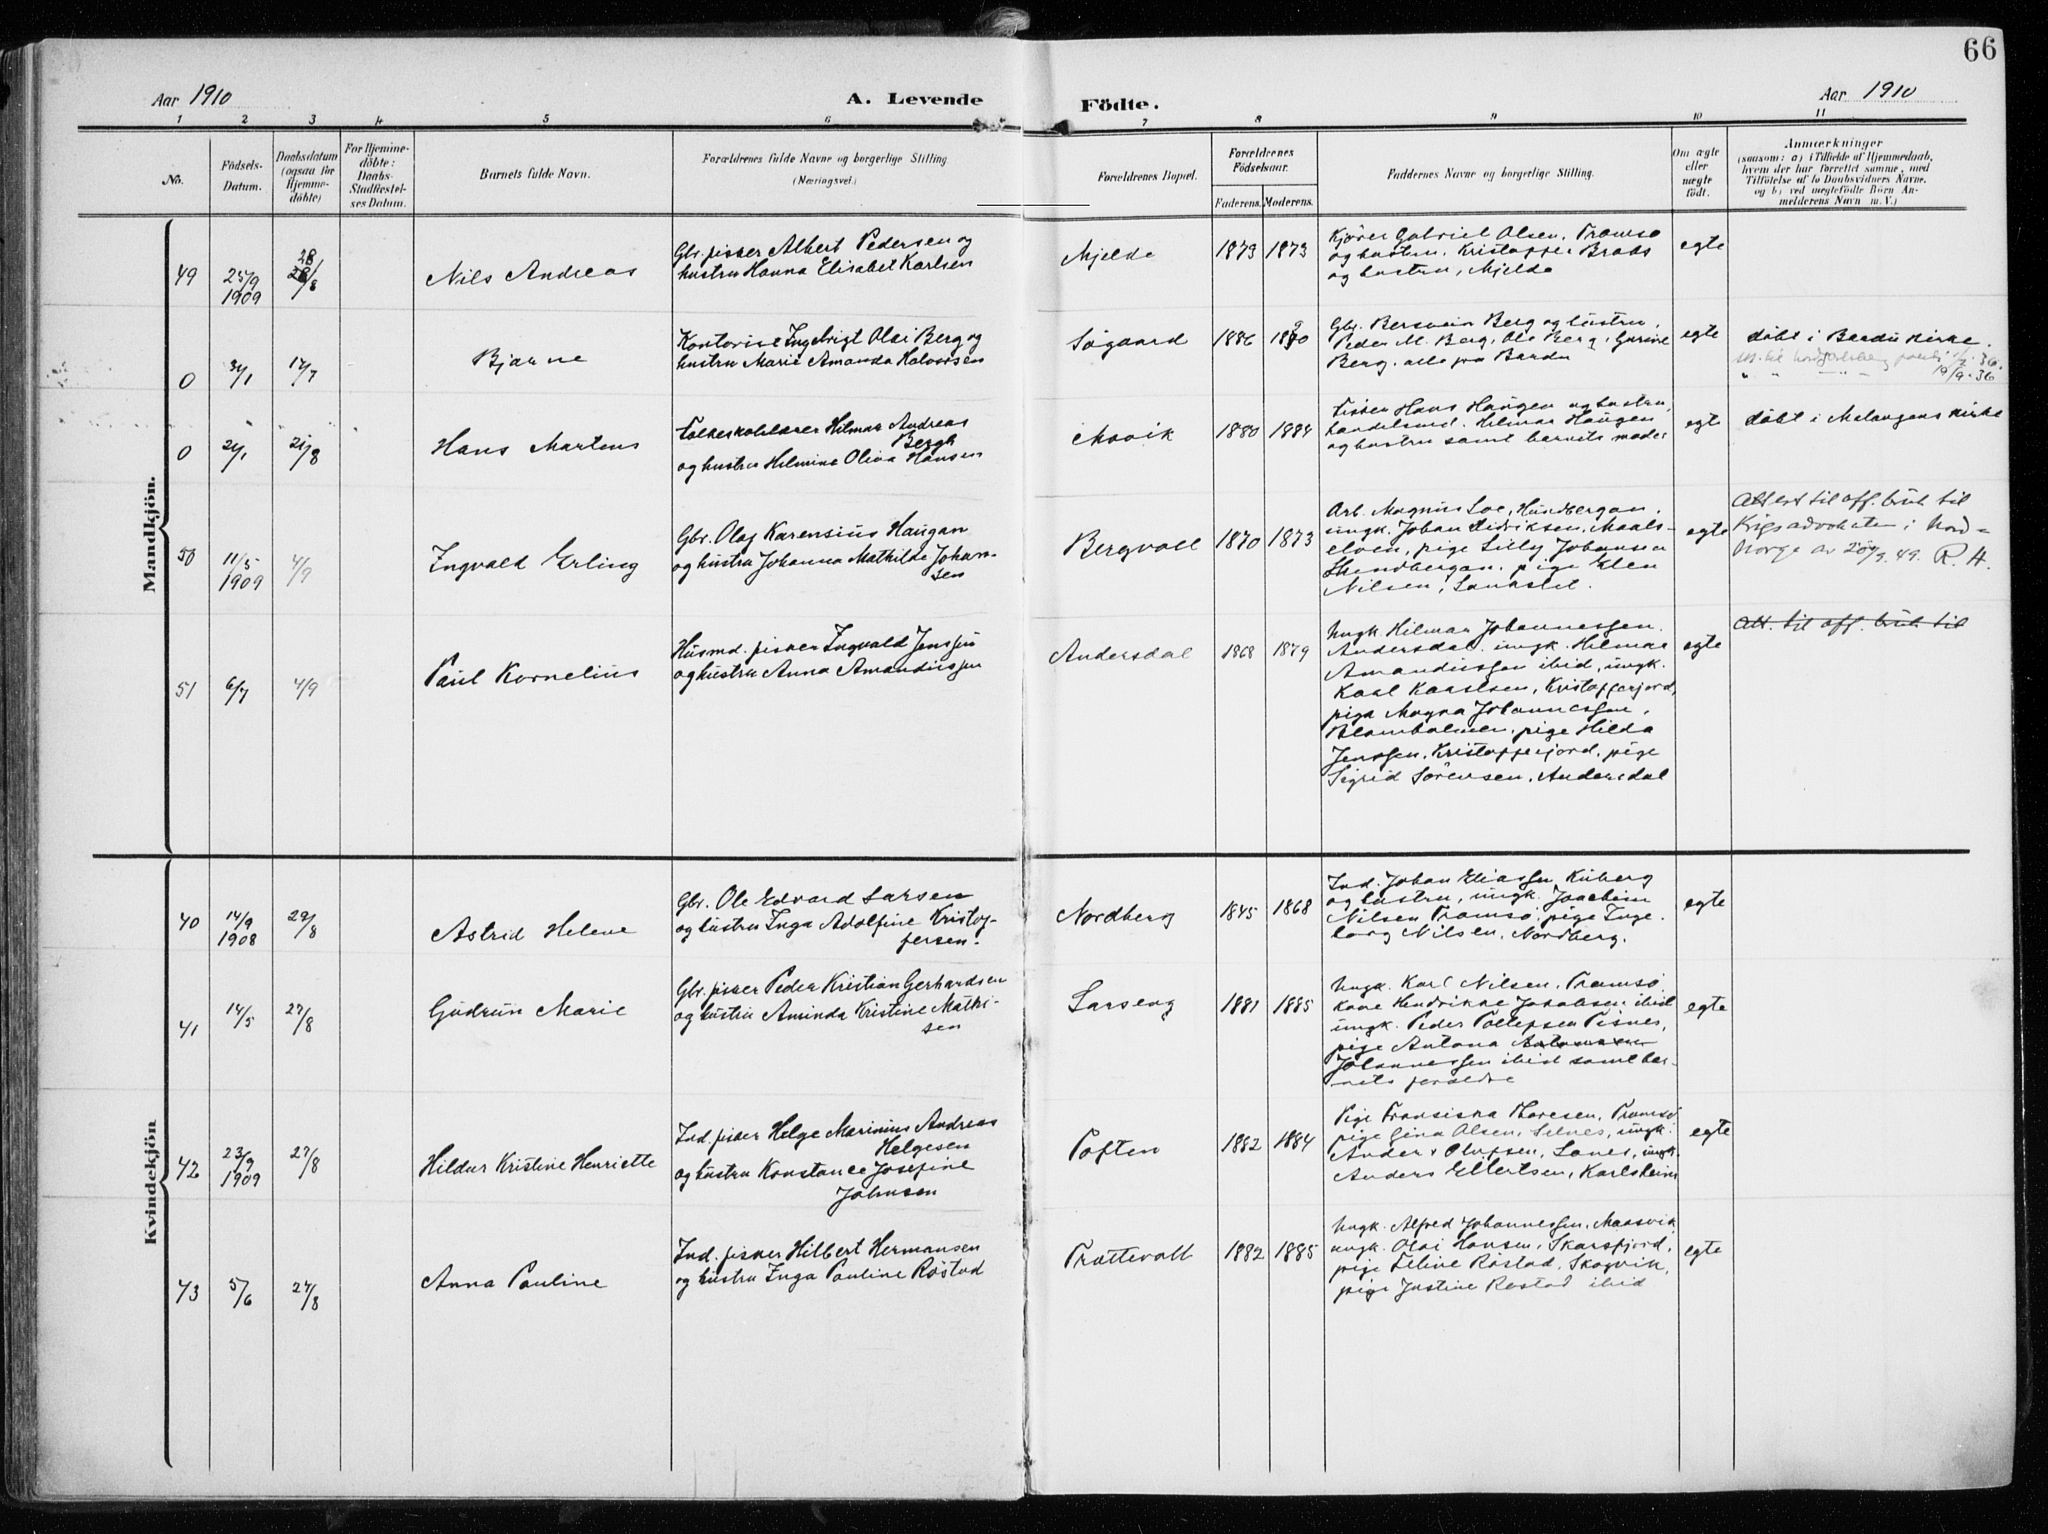 66
Aar 1910
A. Levende
Födte.
Aar 1910
1 2 3 4 5 6 7 8 9 10 11
No.
Födsels-
Datum.
Daabsdatum
(ogsaa for
Hjemme-
döbte)
For Hjemme-
döbte:
Daabs-
Stadfæstel-
ses Datum.
Barnets fulde Navn.
Forældrenes fulde Navne og borgerlige Stilling.
(Næringsvei.)
Forældrenes Bopæl.
Forældrenes
Födselsaar.
Faderens. Moderens.
Faddernes Navne og borgerlige Stilling.
Om ægte
eller
uægte
födt.
Anmærkninger
(saasom: a) i Tilfælde af Hjemmedaab,
hvem der har forrettet samme, med
Tilföielse af to Daabsvidners Navne,
og b) ved uægtefödte Börn An-
melderens Navn m. V.)
Mandkjön.
49
25/9
1909
28
28/8
Nils Andreas
Gbr. fisker Albert Pedersen og
hustru Hanna Elisabet Karlsen
Mjelde
1873 1873
Kjører Gabriel Olsen, Tromsø
og hustru, Kristoffer
og hustru, Mjelde
egte
0
3/1
17/7
Bjarne
Kontorist Ingebrigt Olai Berg og
hustru Marie Amanda Halvorsen
Søgaard
1886
Gbr. Bersvein Berg og hustru,
Peder M. Berg, Ole Berg,
Berg, alle fra Bardu
egte
døbt i Bardu Kirke.
19/9-36
0
21/1
21/8
Hans Martens
Folkeskolelærer Hilmar Andreas
Bergh
og hustru Helmina Oliva Hansen
Mavik
1880 1884
Fisker Hans Haugen og hustru,
handelsmd. Hilmar Haugen
og hustru samt barnets moder
egte
døbt i Malangens Kirke
50
11/5
1909
4/9
Ingvald Erling
Gbr. Olaf Karensius Haugan
og hustru Johanna Mathilde Johan-
sen
Bergvoll
1870 1873
Arb. Magnus Loe, Hundbergan,
ungk. Johan Hedriksen, Maals-
elven, pige Lilly Johansen
Hundbergan, pige Elen
Nilsen,
egte
Attest til off. bruk til
Krigsadvokaten i Nord-
Norge av 20/9. 49. R. H.
51
6/7
4/9
Paul Kornelius
Husmd. fisker Ingvald Jenssen
og hustru Anna Amandussen
Andersdal
1868 1879
Ungk. Hilmar Johannessen,
Andersdal, ungk. Hilmar
Amandussen ibid, ungk.
Karl Karlsen, Kristofferjord,
pige Magna Johannessen,
pige Hilda
Jenssen, Kristofferjord, pige
Sigrid Sørensen, Andersdal
egte
Att. til off. bruk til
Kvindekjön
40
14/9
1908
29/8
Astrid Helene
Gbr. Ole Edvard Larsen
og hustru Inga Adolfine Kristof-
fersen.
Nordberg
1845 1868
Ind. Johan Eliassen, Kuberg
og hustru, ungk. Joachim
Nilsen Tromsø, pige Inge-
borg Nilsen, Nordberg.
egte
41
14/5
27/8
Gudrun Marie
Gbr. fisker Peder Kristian Gerhardsen
og hustru Aminda Kristine Mathi-
sen
Larseng
1881 1885
Ungk. Karl Nilsen, Tromsø,
kone Hendrikke Jakobsen ibid
ungk. Peder Tollefsen Tisnes,
pige Antona
Johannessen ibid samt bar-
nets forældre
egte
42
23/9
1909
27/8
Hildur Kristine Henriette
Ind. fisker Helge Marinius Andreas
Helgesen
og hustru Konstance Josefine
Johnsen
Toften
1882 1884
Pige Fransiska Thoresen, Tromsø
pige Gina Olsen, Selnes, ungk.
Anders Olufsen, Sanes, ungk.
Anders Elbertsen, Karlsheim
egte
43
5/6
27/8
Anna Pauline
Ind. fisker Hilbert Hermansen
og hustru Inga Pauline Røstad
Trættevoll
1882 1885
Ungk. Alfred Johannessen, Maasvik
ungk. Olai Hansen, Skarsfjord,
pige Feline Røstad, Skogvik,
pige Justine Røstad ibid
egte